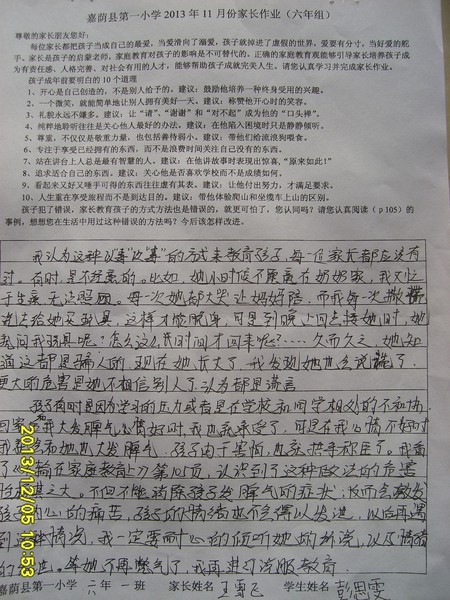 嘉荫县第一小学2013年11月份家长作业（六年组）
尊敬的家长朋友您好：
每位家长都把孩子当成自己的最爱，当爱滑向了溺爱，孩子就掉进了虚假的世界，爱要有分寸，当好爱的舵
手。家长是孩子的启蒙老师，家庭教育对孩子的影响是不可替代的。正确的家庭教育观能够引导家长培养孩子成
为有责任感、人格完善、对社会有用的人才，能够帮助孩子成就完美人生。请您认真学习并完成家长作业。
孩子成年前要明白的10个道理
1、开心是自己创造的，不是别人给予的。建议：鼓励他培养一种终身受用的兴趣。
2、一个微笑，就能简单地让别人拥有美好一天。建议：称赞他开心时的笑容。
3、礼貌永远不嫌多。建议：让“请”、“谢谢”和“对不起”成为他的“口头禅”。
4、纯粹地聆听往往是关心他人最好的办法。建议：在他陷入困境时只是静静倾听。
5、尊重，不仅仅是敬重力量，也包括善待弱小。建议：带他们给流浪狗喂食。
6、专注于享受已经拥有的东西，而不是浪费时间关注自己没有的东西。
7、站在讲台上人总是最有智慧的人。建议：在他讲故事时表现出惊喜，“原来如此！”
8、追求活合自己的东西。建议：关心他是否喜欢学校而不是成绩如何。
9、看起来又好又唾手可得的东西往往虚有其表。建议：让他付出努力，才满足要求。
10、人生重在享受旅程而不是到达目的。建议：带他体验爬山和坐缆车上山的区别。
孩子犯了错误，家长教育孩子的方式方法也是错误的，就更可怕了。您认同吗？请您认真阅读（p105）的
事例，想想您在生活中用过这种错误的方法吗？今后该怎样改进。
我认为这种以“毒”攻“毒”的方式来教育孩子，每一位家长都应该有
过。有时是不经意的。比如，她小时候不愿意在奶奶家，我又忙
于生意无法照顾。每一次她都大哭让妈妈陪，而我每一次撒慌
说去给她买玩具，这样才能脱身，可是到晚上回去接她时，她
就问我玩具呢？怎么这么长时间才回来呢？……久而久之，她知
道这都是骗人的，现在她长大了，我发现她也会说谎了。
更大的危害是她不相信别人了，认为都是谎言
孩子有时是因为学习的压力或者是在学校和同学相处的不和协
回家 我大发脾气，心情好时，我也就承受了，可是在我心情不好时
我 和她也大发脾气，孩子由于害怕，也就
在家庭教育上》 认识到了这种做法的危害
之大。不但不能消除孩子发脾气的症状，反而会激发
孩子内心的痛苦，孩子的情绪也不会得以发泄，以后再遇
到 情况，我一定要耐心的倾听她的 以及情绪
的 等她不再燃气了，我再进行说服教育。
2013/12/05 10:53
嘉荫县第一小学 六年一班 家长姓名 王雪飞 学生姓名 彭思雯